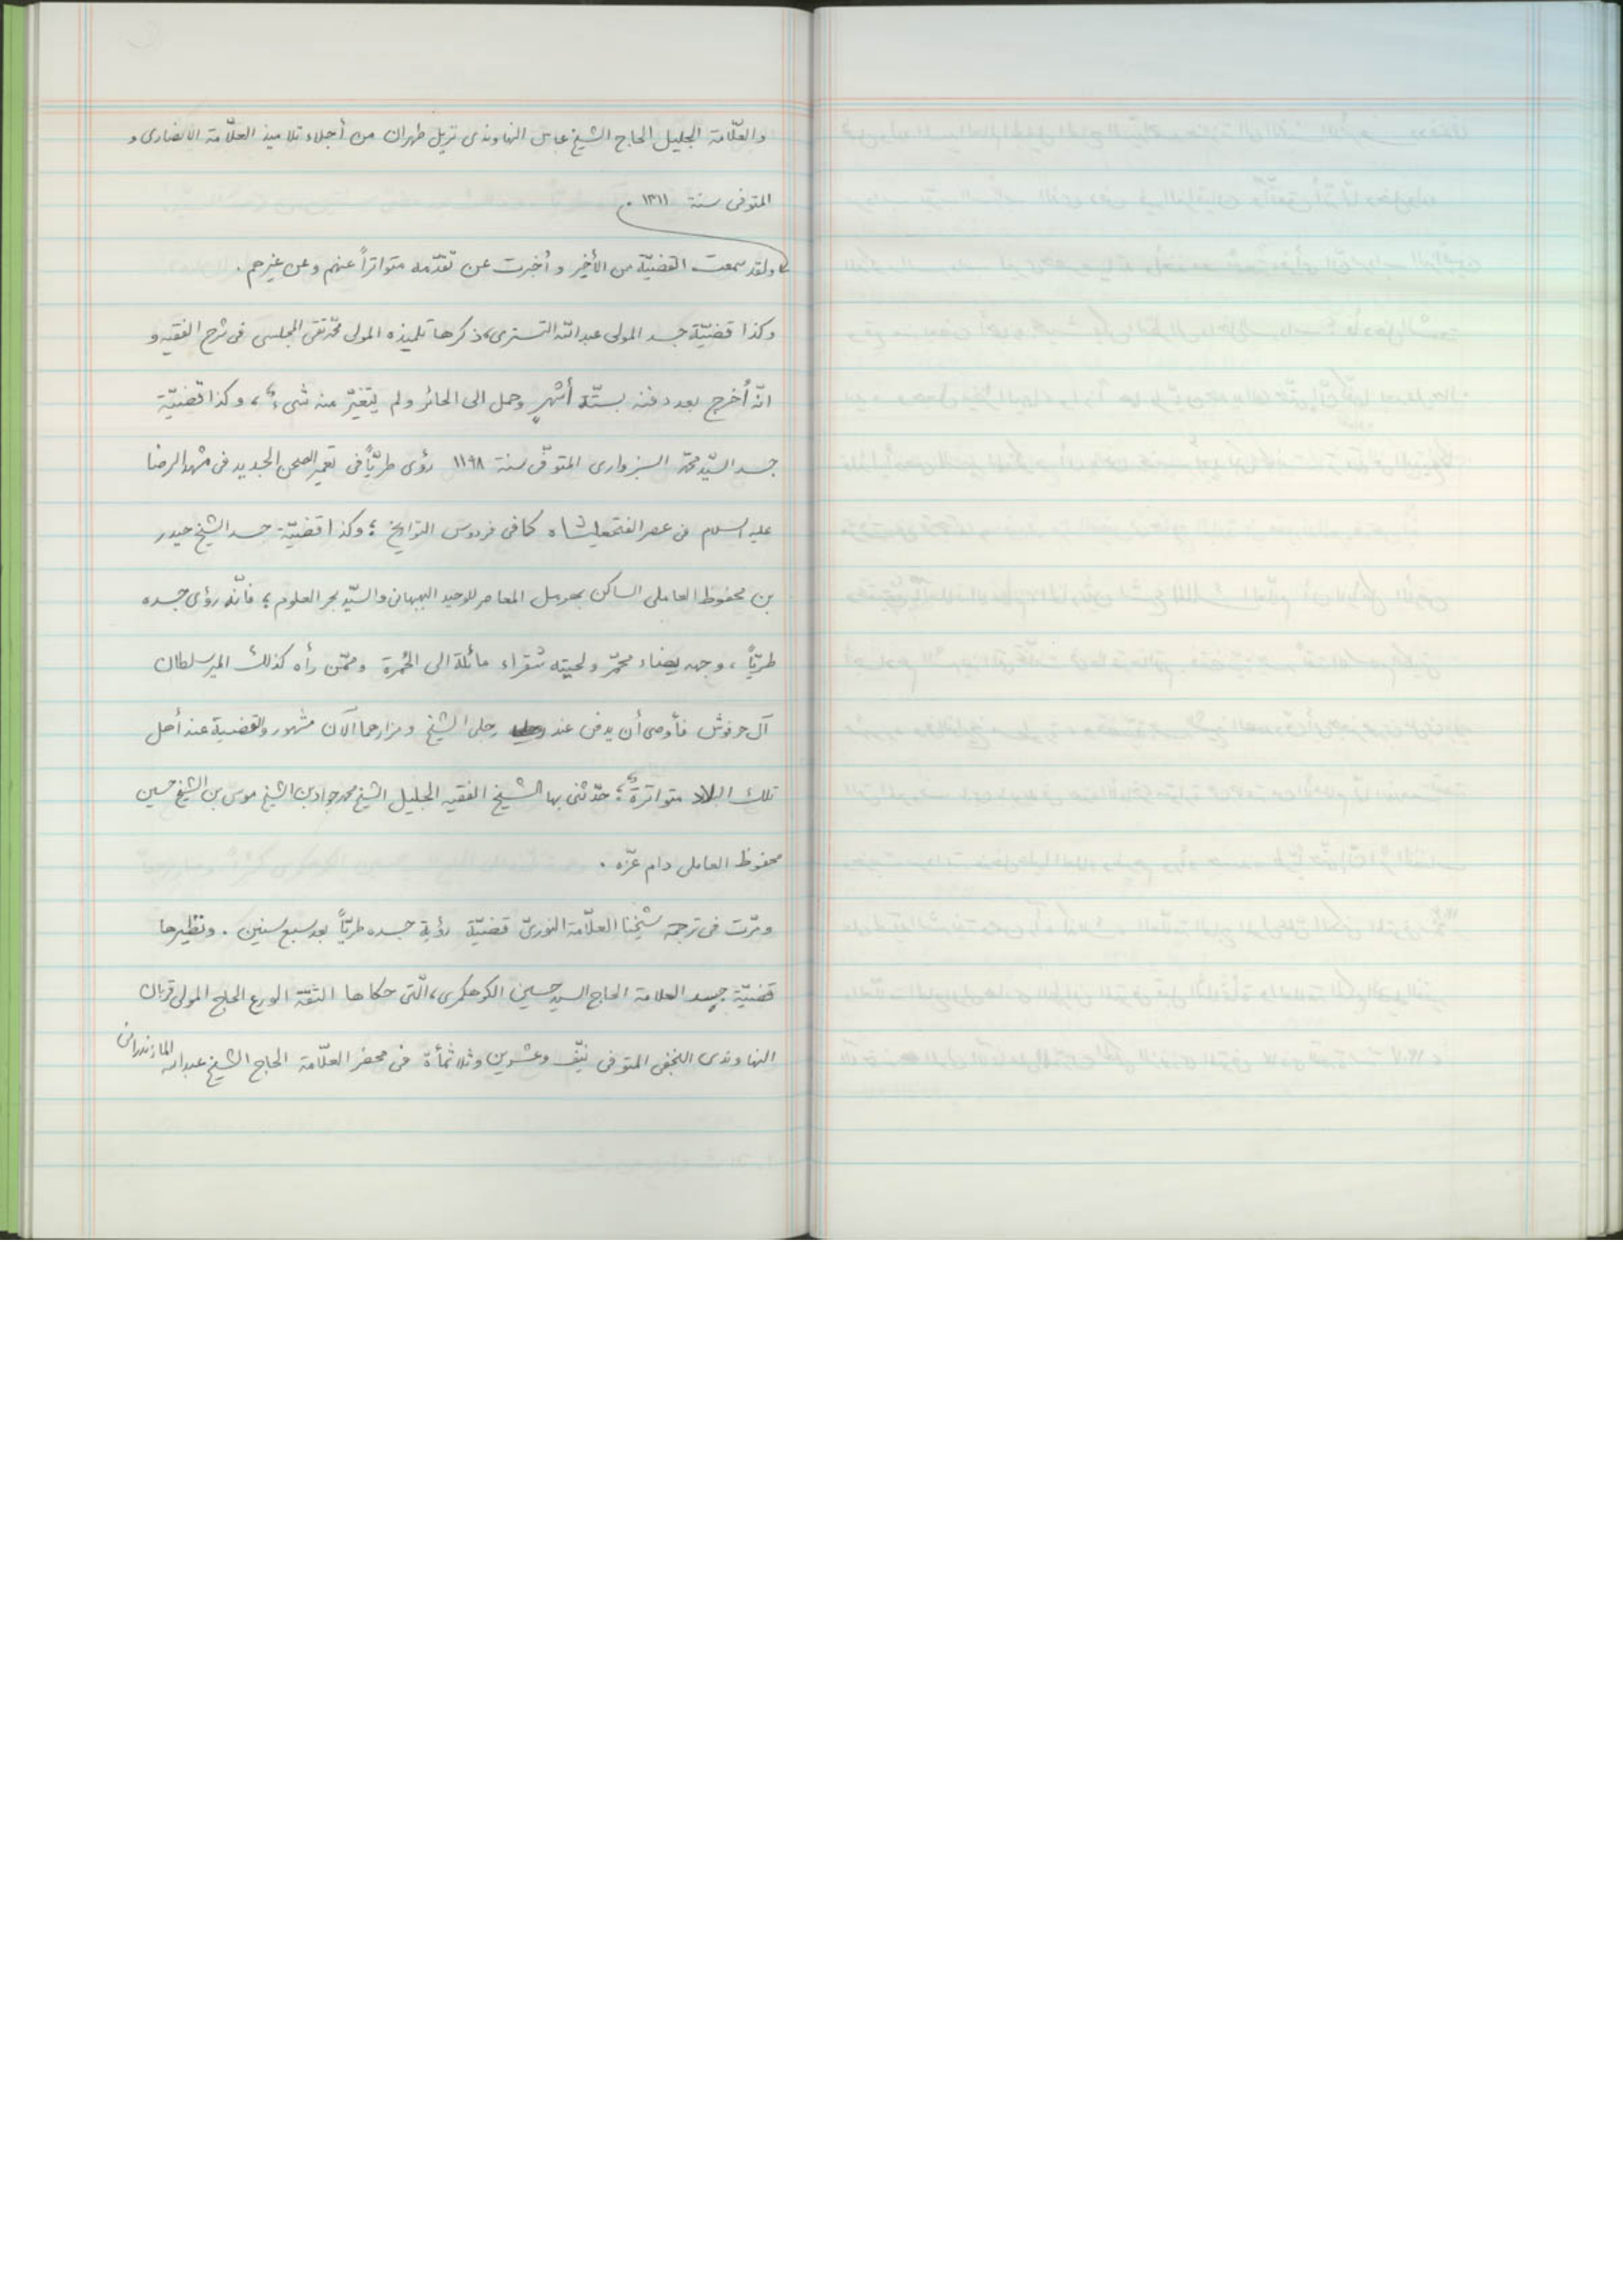 والعلّامة الجليل الحاج الشيخ عباس النهاوندى نزيل طهران من أجلاء تلاميذ العلّامة الانصارى و
المتوفى سنة ١٣١١ .
ولقد سمعت القضيّة من الأخير و أخبرت عن تقدّمه متواتراً عنهم وعن غيرهم .
وكذا قضيّة جسد المولى عبد اللّه التسترى، ذكرها تلميذه المولى محمّد تقى المجلسى فى شرح الفقيه و
انّه أُخرج بعد دفنه بستّة أشهرٍ وحمل الى الحائر ولم يتغيّر منه شىء ؛ وكذا قضيّة
جسد السيّد محمّد السبزوارى المتوفّى سنة ١١٩٨ رؤى طريّاً فى تعمير الصحن الجديد فى مشهد الرضا
عليه السلام فى عصر الفتحعليشاه كما فى فردوس التواريخ ؛ وكذا قضيّة جسد الشيخ حيدر
بن محفوظ العاملى الساكن بهرمل المعاصر للوحيد البهبهانى والسيّد بحر العلوم ؛ فانّه رؤى جسده
طريّاً ، وجهه بيضاء محمرّ ولحيته شقراء مائلة الى الحُمرة وممّن رأه كذلك المير سلطان
آل حرفوش فأوصى أن يدفن عند رجلى الشيخ ومزارهما الآن مشهور والقضية عند أهل
تلك البلاد متواترةٌ ؛ حدّثنى بها الشيخ الفقيه الجليل الشيخ محمد جواد بن الشيخ موسى بن الشيخ حسين
محفوظ العاملى دام عزّه .
ومرّت فى ترجمة شيخنا العلّامة النورىّ قضيّة رؤية جسده طريّاً بعد سبع سنين . ونظيرها
قضيّة جسد العلامة الحاج السيد حسين الكوهكمرى، الّتى حكاها الثقة الورع الحاج المولى قربان
النهاوندى النجفى المتوفى نيّف وعشرين وثلاثمأة فى محضر العلّامة الحاج الشيخ عبد الله المازندرانى